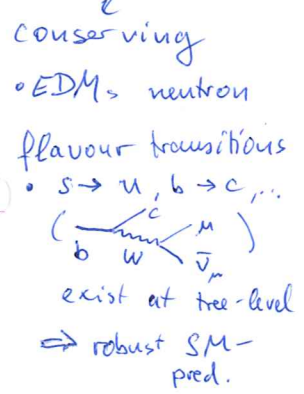 conserving
• EDMs neutron
flavour transitions
• s → u, b → c, ...
( b W c μ ν̄_μ )
exist at tree-level
⇒ robust SM-
pred.